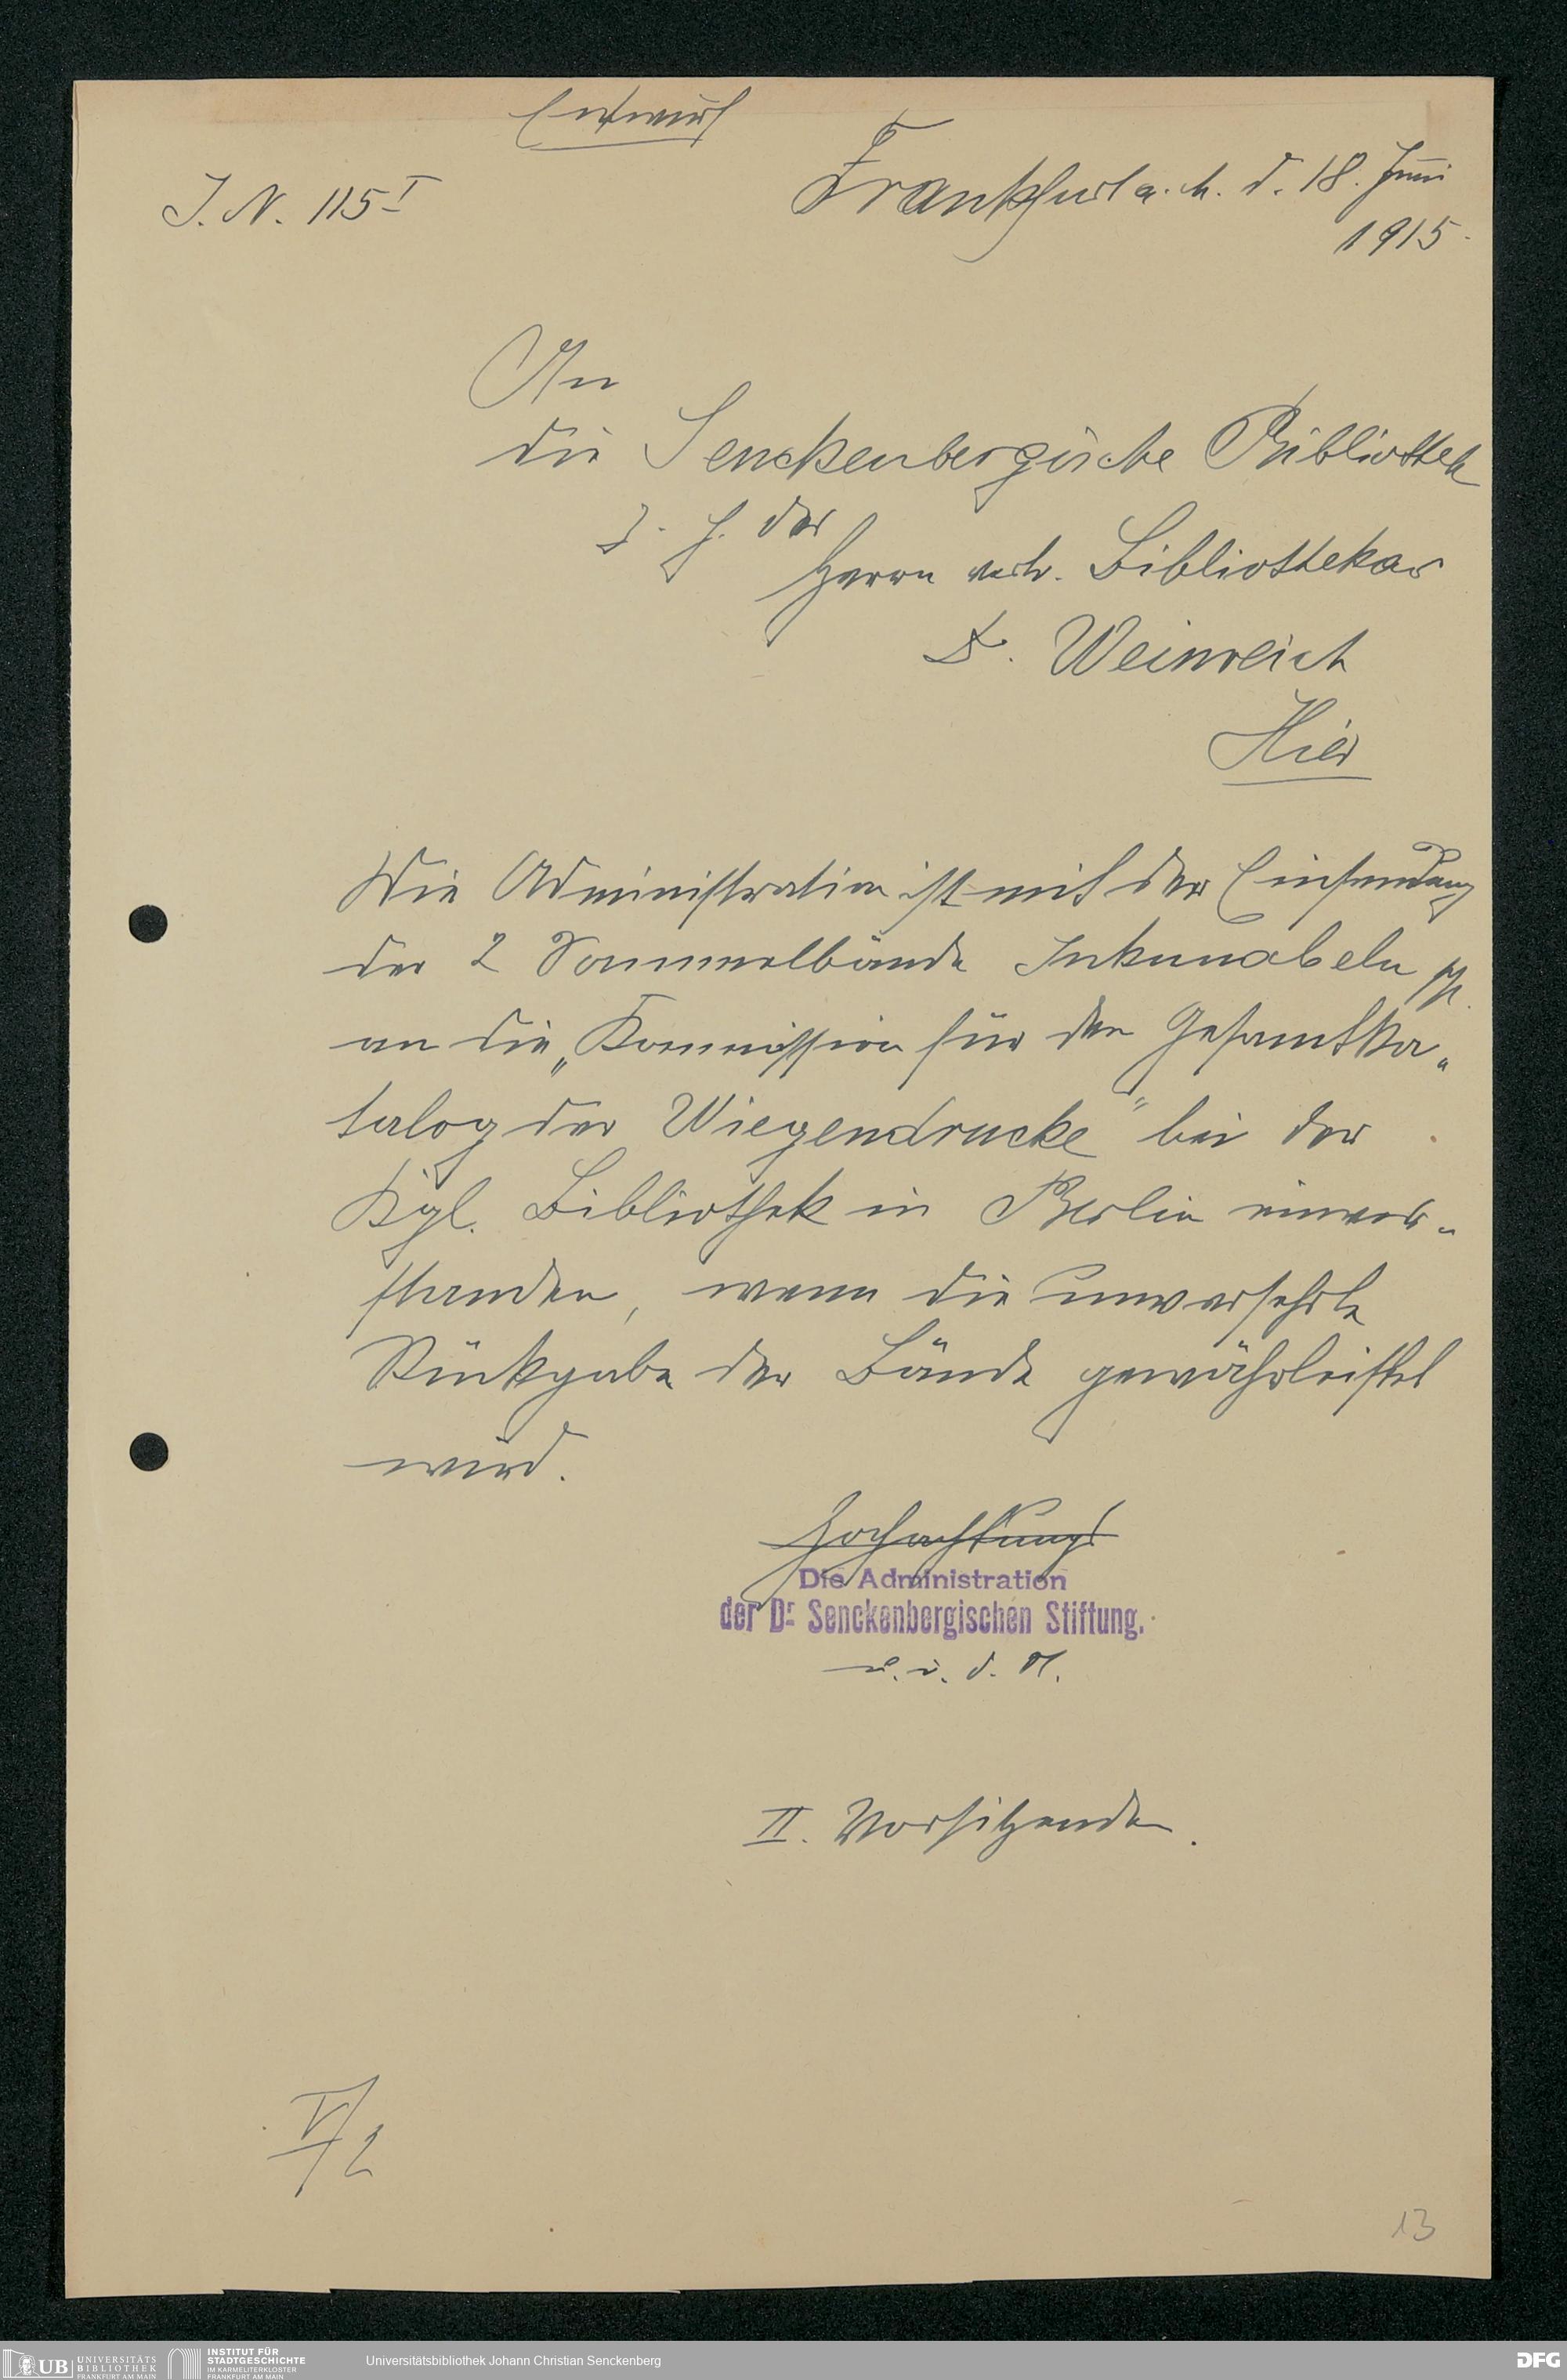 Entwurf
J. N. 115 I
Frankfurt a. M. d. 18. Juni
1915.
An
die Senckenbergische Bibliothek
z. H. des
Herrn Bibliothekar
Dr. Weinreich
Hier
Die Administration ist mit der Einsendung
der 2 Sammelbände Inkunabeln pp.
an die „Kommission für den Gesamtka-
talog der Wiegendrucke" bei der
Kgl. Bibliothek in Berlin einver-
standen, wenn die unversehrte
Rückgabe der Bände gewährleistet
wird.
Hochachtungs
Die Administration
der Dr. Senckenbergischen Stiftung.
II. Vorsitzender.
V/2
13
UB UNIVERSITÄTS
BIBLIOTHEK
FRANKFURT AM MAIN
INSTITUT FÜR
STADTGESCHICHTE
IM KARMELITERKLOSTER
FRANKFURT AM MAIN
Universitätsbibliothek Johann Christian Senckenberg
DFG